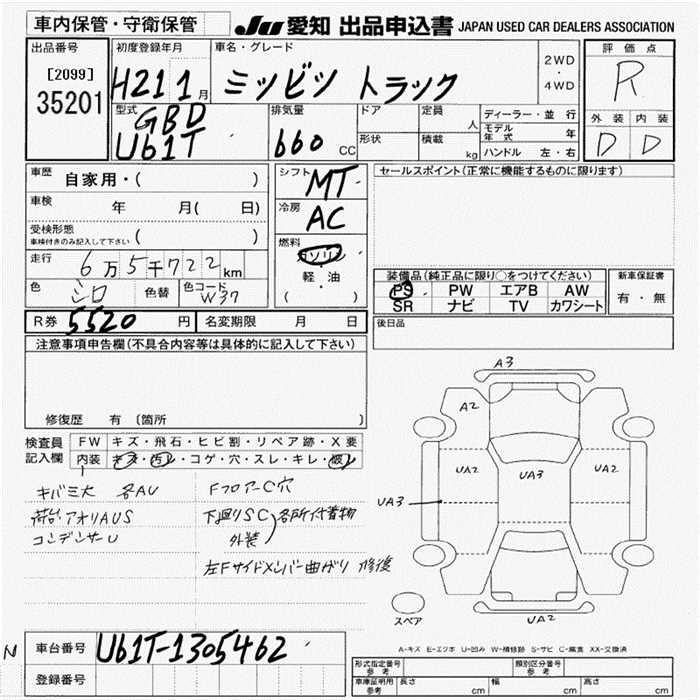 車内保管・守衛保管
JU 愛知 出品申込書 JAPAN USED CAR DEALERS ASSOCIATION
出品番号
[2099]
35201
初度登録年月
H21 1月
車名・グレード
ミツビシ トラック
2WD
・
4WD
評価点
R
外装 内装
D D
型式
GBD
U61T
排気量
660 CC
ドア
形状
定員
人
積載
kg
ディーラー・並行
モデル年式 年
ハンドル 左・右
車歴 自家用・( )
車検 年 月( 日)
受検形態
車検付きのみ記入して下さい ( )
走行 6万5千722km
色 シロ 色替 色コード W37
シフト MT
冷房 AC
燃料
ガソリン
軽・油
( )
セールスポイント(正常に機能するものに限ります)
装備品(純正品に限り○をつけてください)
PS PW エアB AW
SR ナビ TV カワシート
新車保証書
有・無
R券 5520 円 名変期限 月 日
後日品
注意事項申告欄(不具合内容等は具体的に記入して下さい)
修復歴 有 〔箇所 〕
検査員記入欄
FW キズ・飛石・ヒビ割・リペア跡・X要
内装 キズ・汚レ・コゲ・穴・スレ・キレ・破レ
キバミ大 各AU
荷台アオリAUS
コンデンサーU
Fフロアーc穴
下廻りSC 各所付着物
外装
左Fサイドメンバー曲がり 修復
A3
A2
UA2
UA3
UA2
UA3
UA2
スペア
A-キズ E-エクボ U-凹み W-補修跡 S-サビ C-腐食 XX-交換済
N
車台番号 U61T-1305462
登録番号
形式指定番号
参考
類別区分番号
参考
車庫証明用
参考
長さ cm 幅 cm 高さ cm